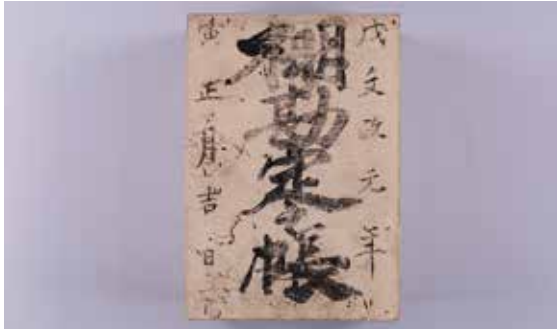 戊文政元年
棚勘定帳
寅正月吉日